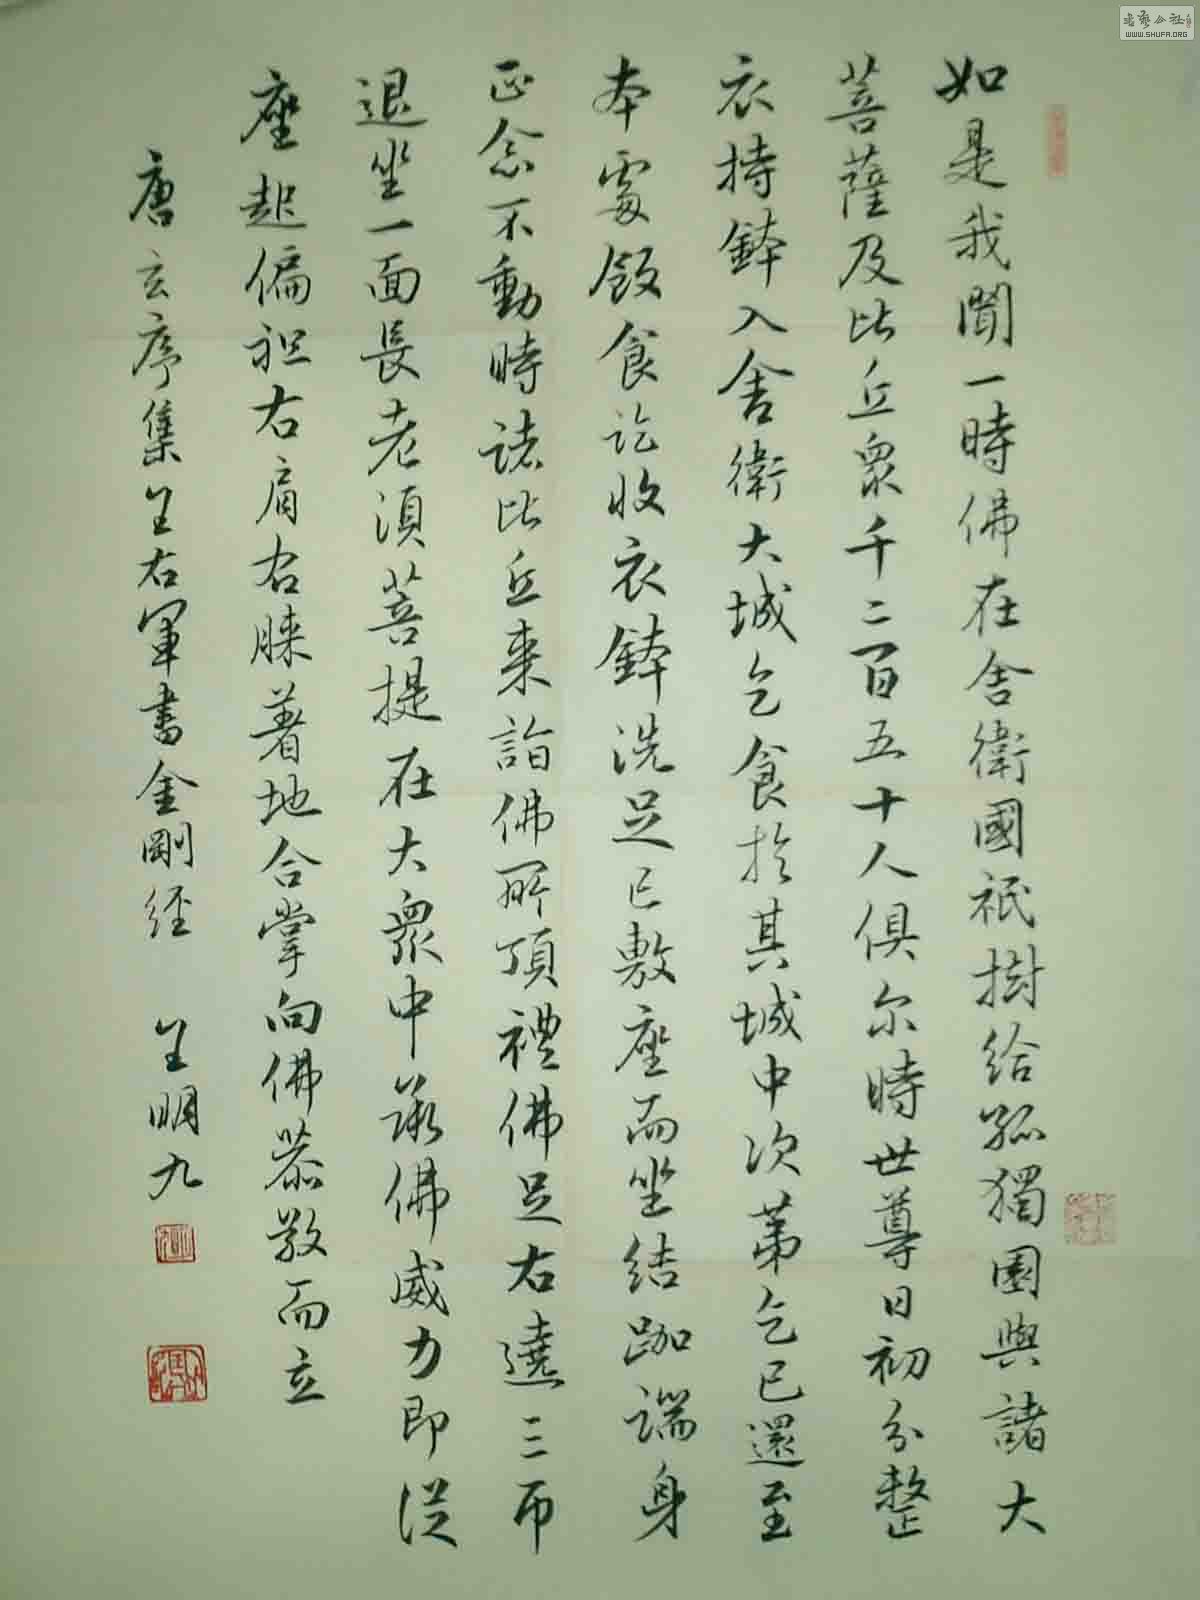 如是我聞一時佛在舍衛國祇樹給孤獨園與諸大
菩薩及比丘眾千二百五十人俱尔時世尊日初分整
衣持鉢入舍衛大城乞食於其城中次第乞已還至
本處飯食訖收衣鉢洗足已敷座而坐結跏端身
正念不動時諸比丘来詣佛所頂禮佛足右遶三帀
退坐一面長老須菩提在大眾中承佛威力即從
座起偏袒右肩右膝著地合掌向佛恭敬而立
唐玄序集王右軍書金剛經 王明九
書藝公社
WWW.SHUFA.ORG